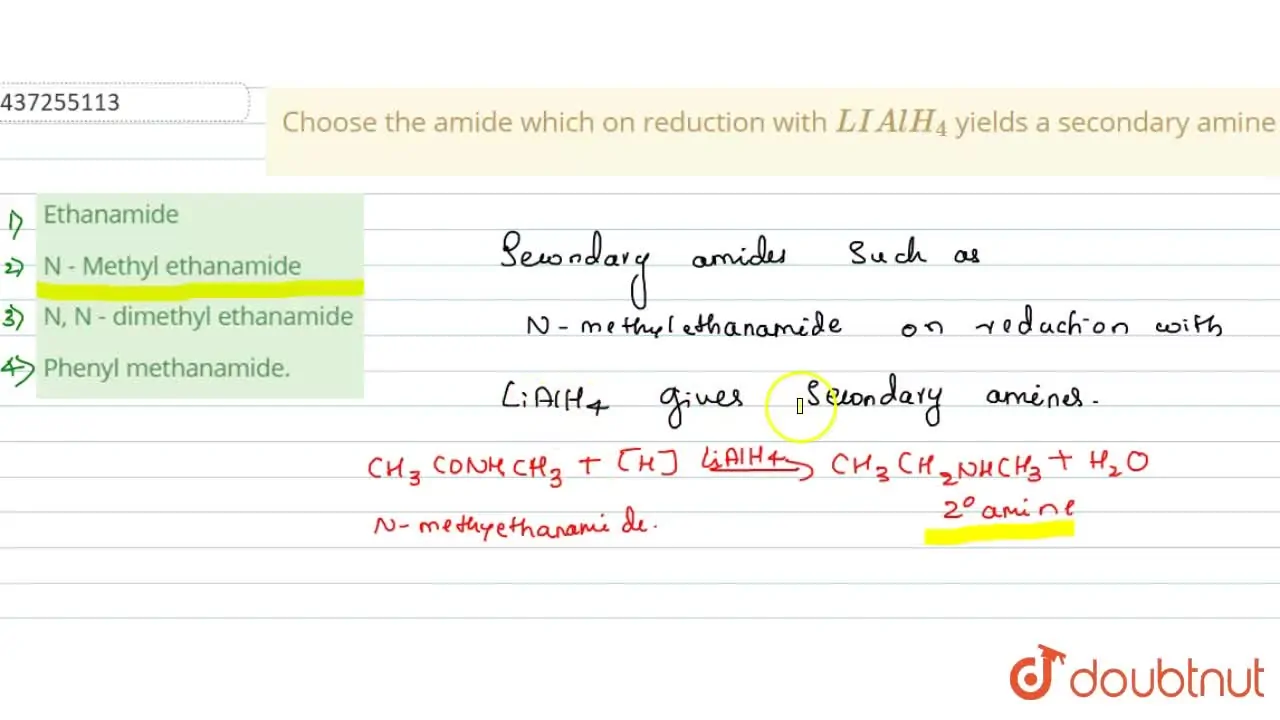 437255113
Choose the amide which on reduction with LIAlH₄ yields a secondary amine
1) Ethanamide
2) N - Methyl ethanamide
3) N, N - dimethyl ethanamide
4) Phenyl methanamide.
Secondary amides such as
N-methylethanamide on reduction with
LiAlH₄ gives Secondary amines.
CH₃CONHCH₃ + [H] LiAlH₄→ CH₃CH₂NHCH₃ + H₂O
2° amine
N-methyethanamide.
doubtnut